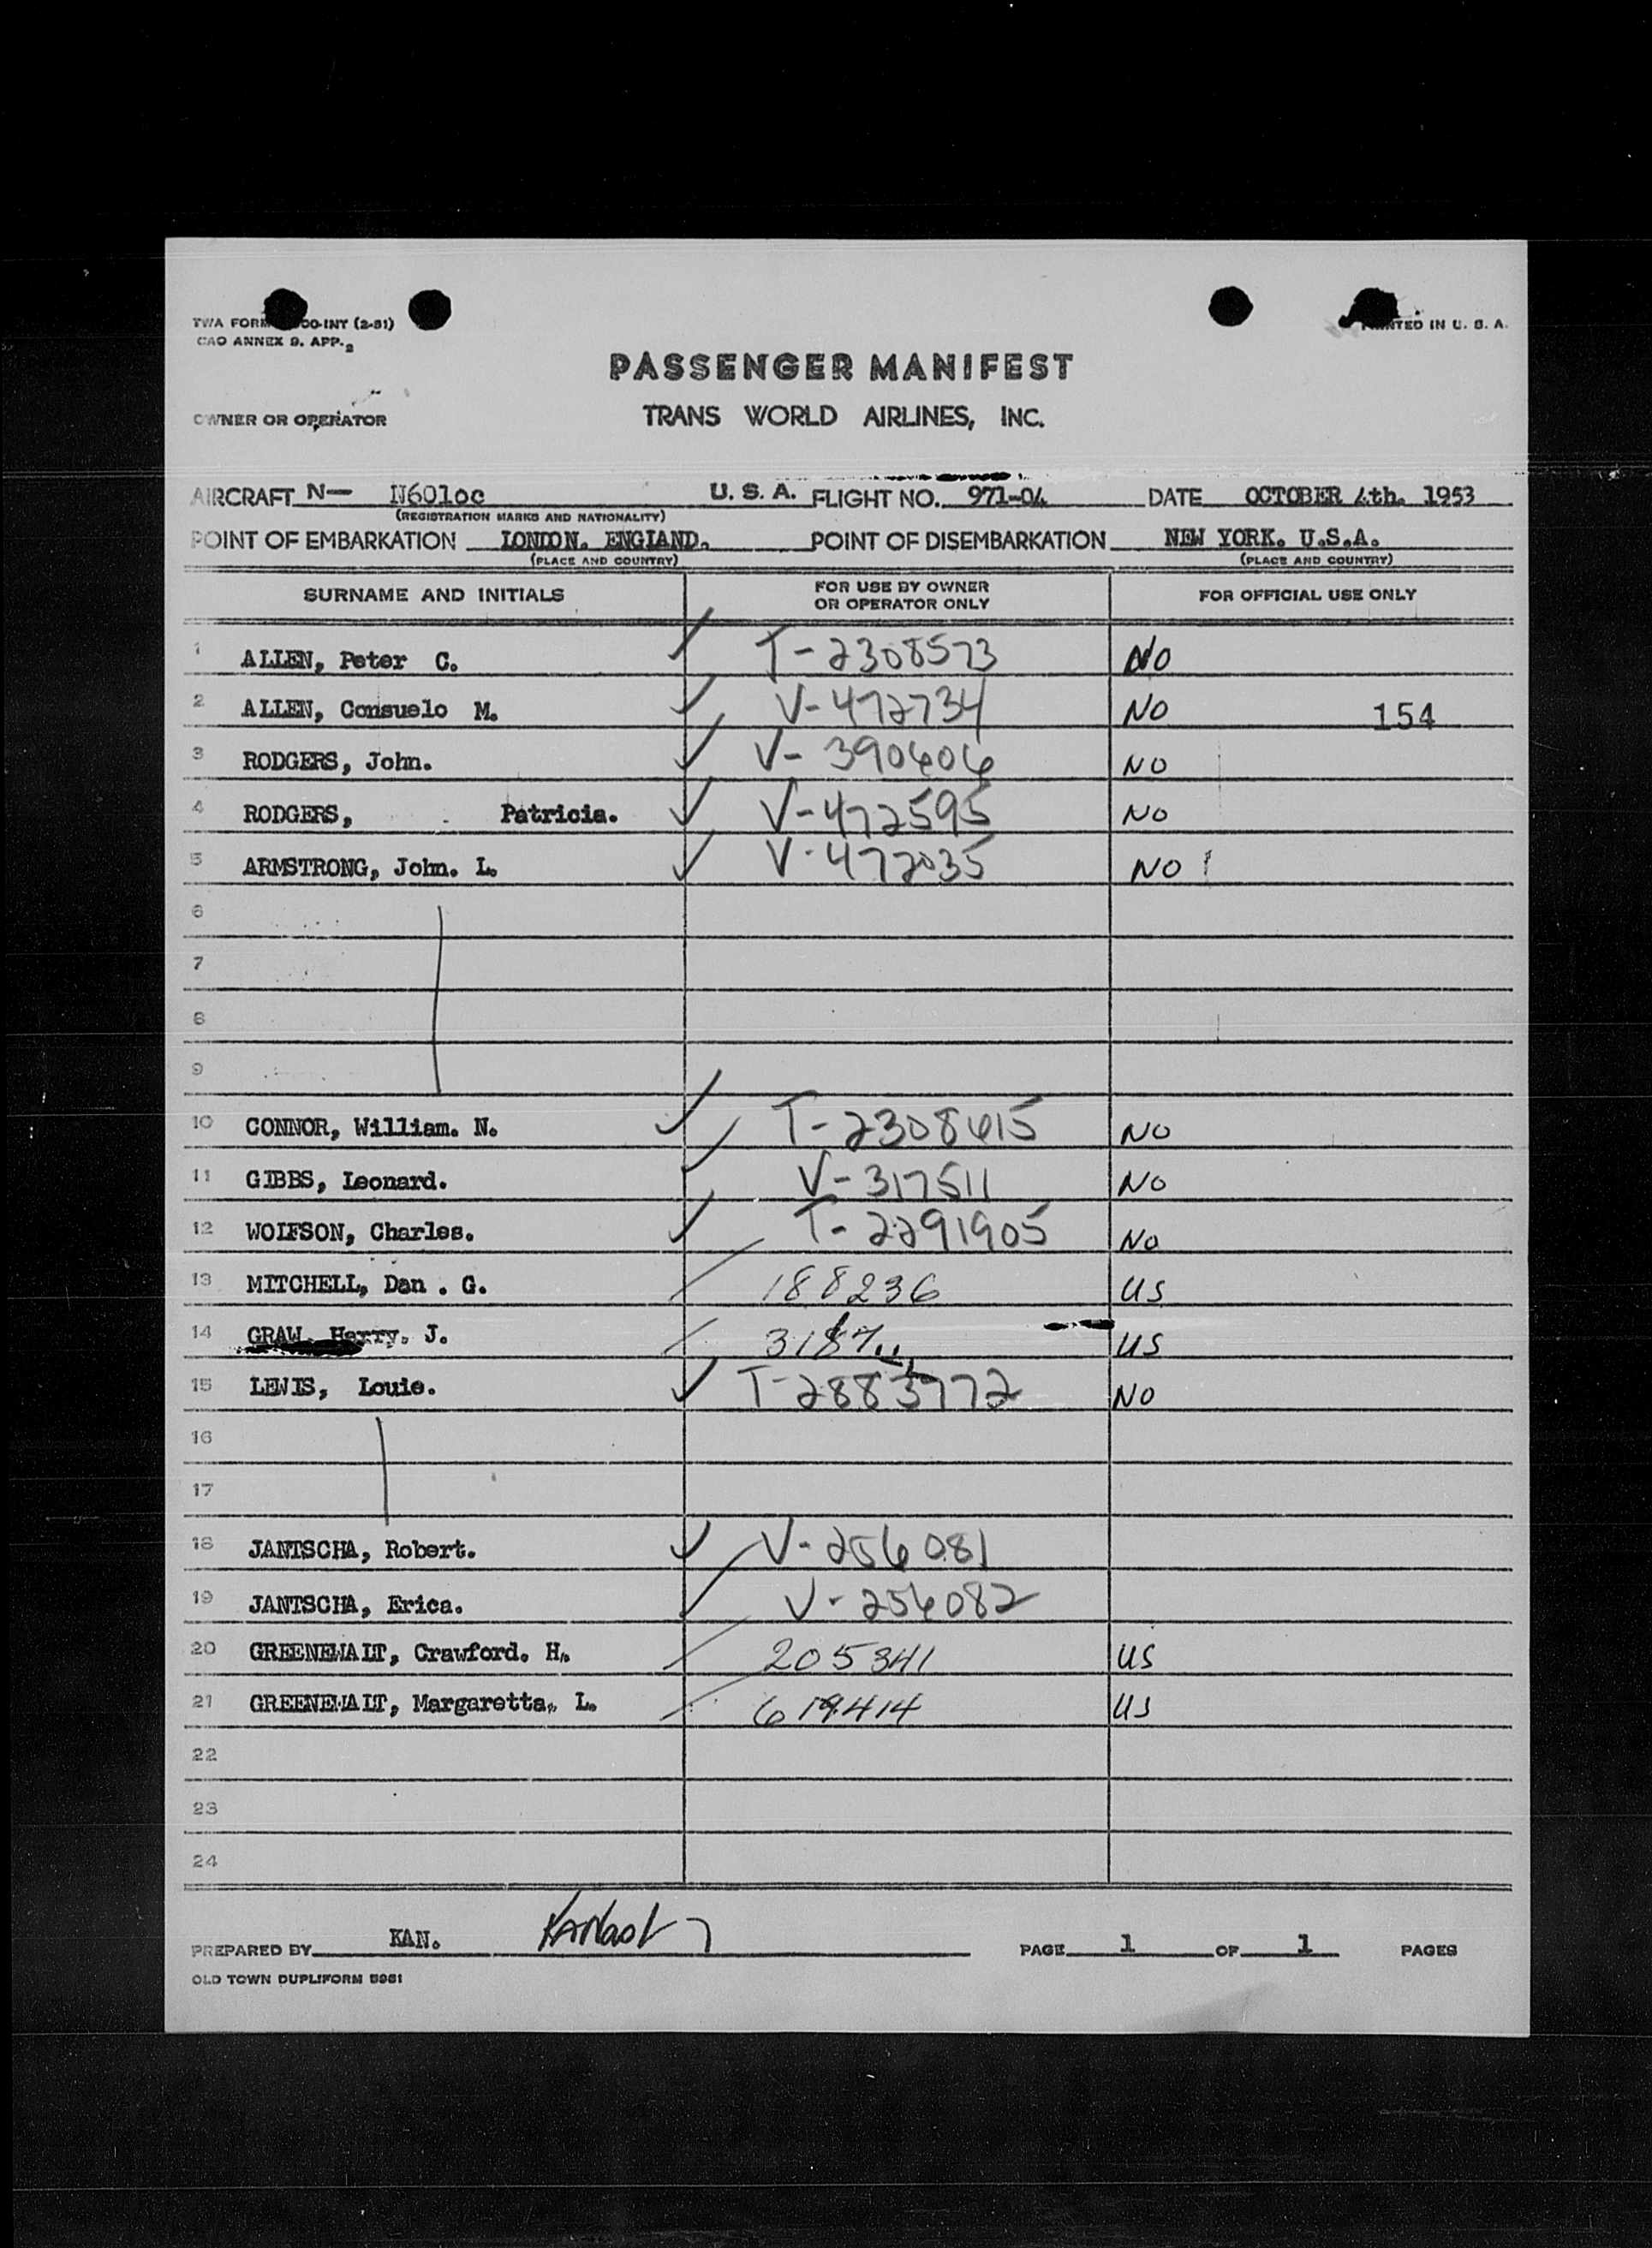 TWA FORM OO-INT (2-51)
PRINTED IN U. S. A.
CAO ANNEX 9. APP. 2
PASSENGER MANIFEST
OWNER OR OPERATOR
TRANS WORLD AIRLINES, INC.
AIRCRAFT N— N6010c U. S. A. FLIGHT NO. 971-04 DATE OCTOBER 4th. 1953
(REGISTRATION MARKS AND NATIONALITY)
POINT OF EMBARKATION LONDON. ENGLAND. POINT OF DISEMBARKATION NEW YORK. U.S.A.
(PLACE AND COUNTRY) (PLACE AND COUNTRY)
SURNAME AND INITIALS FOR USE BY OWNER OR OPERATOR ONLY FOR OFFICIAL USE ONLY
1 ALLEN, Peter C. T-2308573 NO
2 ALLEN, Consuelo M. V-472734 NO 154
3 RODGERS, John. V-390606 NO
4 RODGERS, Patricia. V-472595 NO
5 ARMSTRONG, John. L. V-472035 NO
6
7
8
9
10 CONNOR, William. N. T-2308615 NO
11 GIBBS, Leonard. V-317511 NO
12 WOLFSON, Charles. T-2291905 NO
13 MITCHELL, Dan . G. 188236 US
14 GRAW, Harry. J. US
15 LEWIS, Louie. T-2883772 NO
16
17
18 JANTSCHA, Robert. V-256081
19 JANTSCHA, Erica. V-256082
20 GREENEWALT, Crawford. H. 205341 US
21 GREENEWALT, Margaretta. L. 619414 US
22
23
24
PREPARED BY KAN. PAGE 1 OF 1 PAGES
OLD TOWN DUPLIFORM 5951